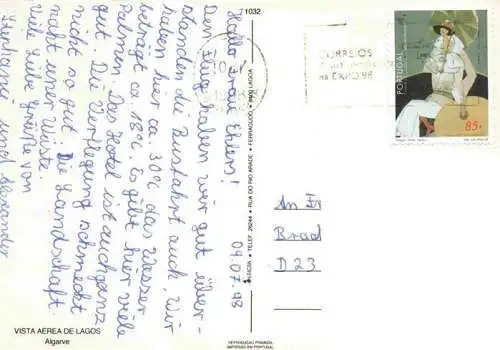 Hallo Frau Ehlers!
09.07.98
Den Flug haben wir gut über-
standen die Busfahrt auch. Wir
haben hier ca. 30°C das Wasser
beträgt ca. 18°C. Es gibt hier viele
Palmen. Das Hotel ist auch ganz
gut. Die Verpflegung schmeckt
nicht so gut. Die Landschaft
macht einer Wüste.
Viele liebe Grüße von
Stephanie und Alexander
An Fr
Brad
D 23
1032
CORREIOS
NA EXPO 98
PORTUGAL
85.
VISTA AÉREA DE LAGOS
Algarve
TELEF. 26244 • RUA DO RIO ARADE • FERRAGUDO • 8400 LAGOA
REPRODUÇÃO PROIBIDA
IMPRESSO EM PORTUGAL